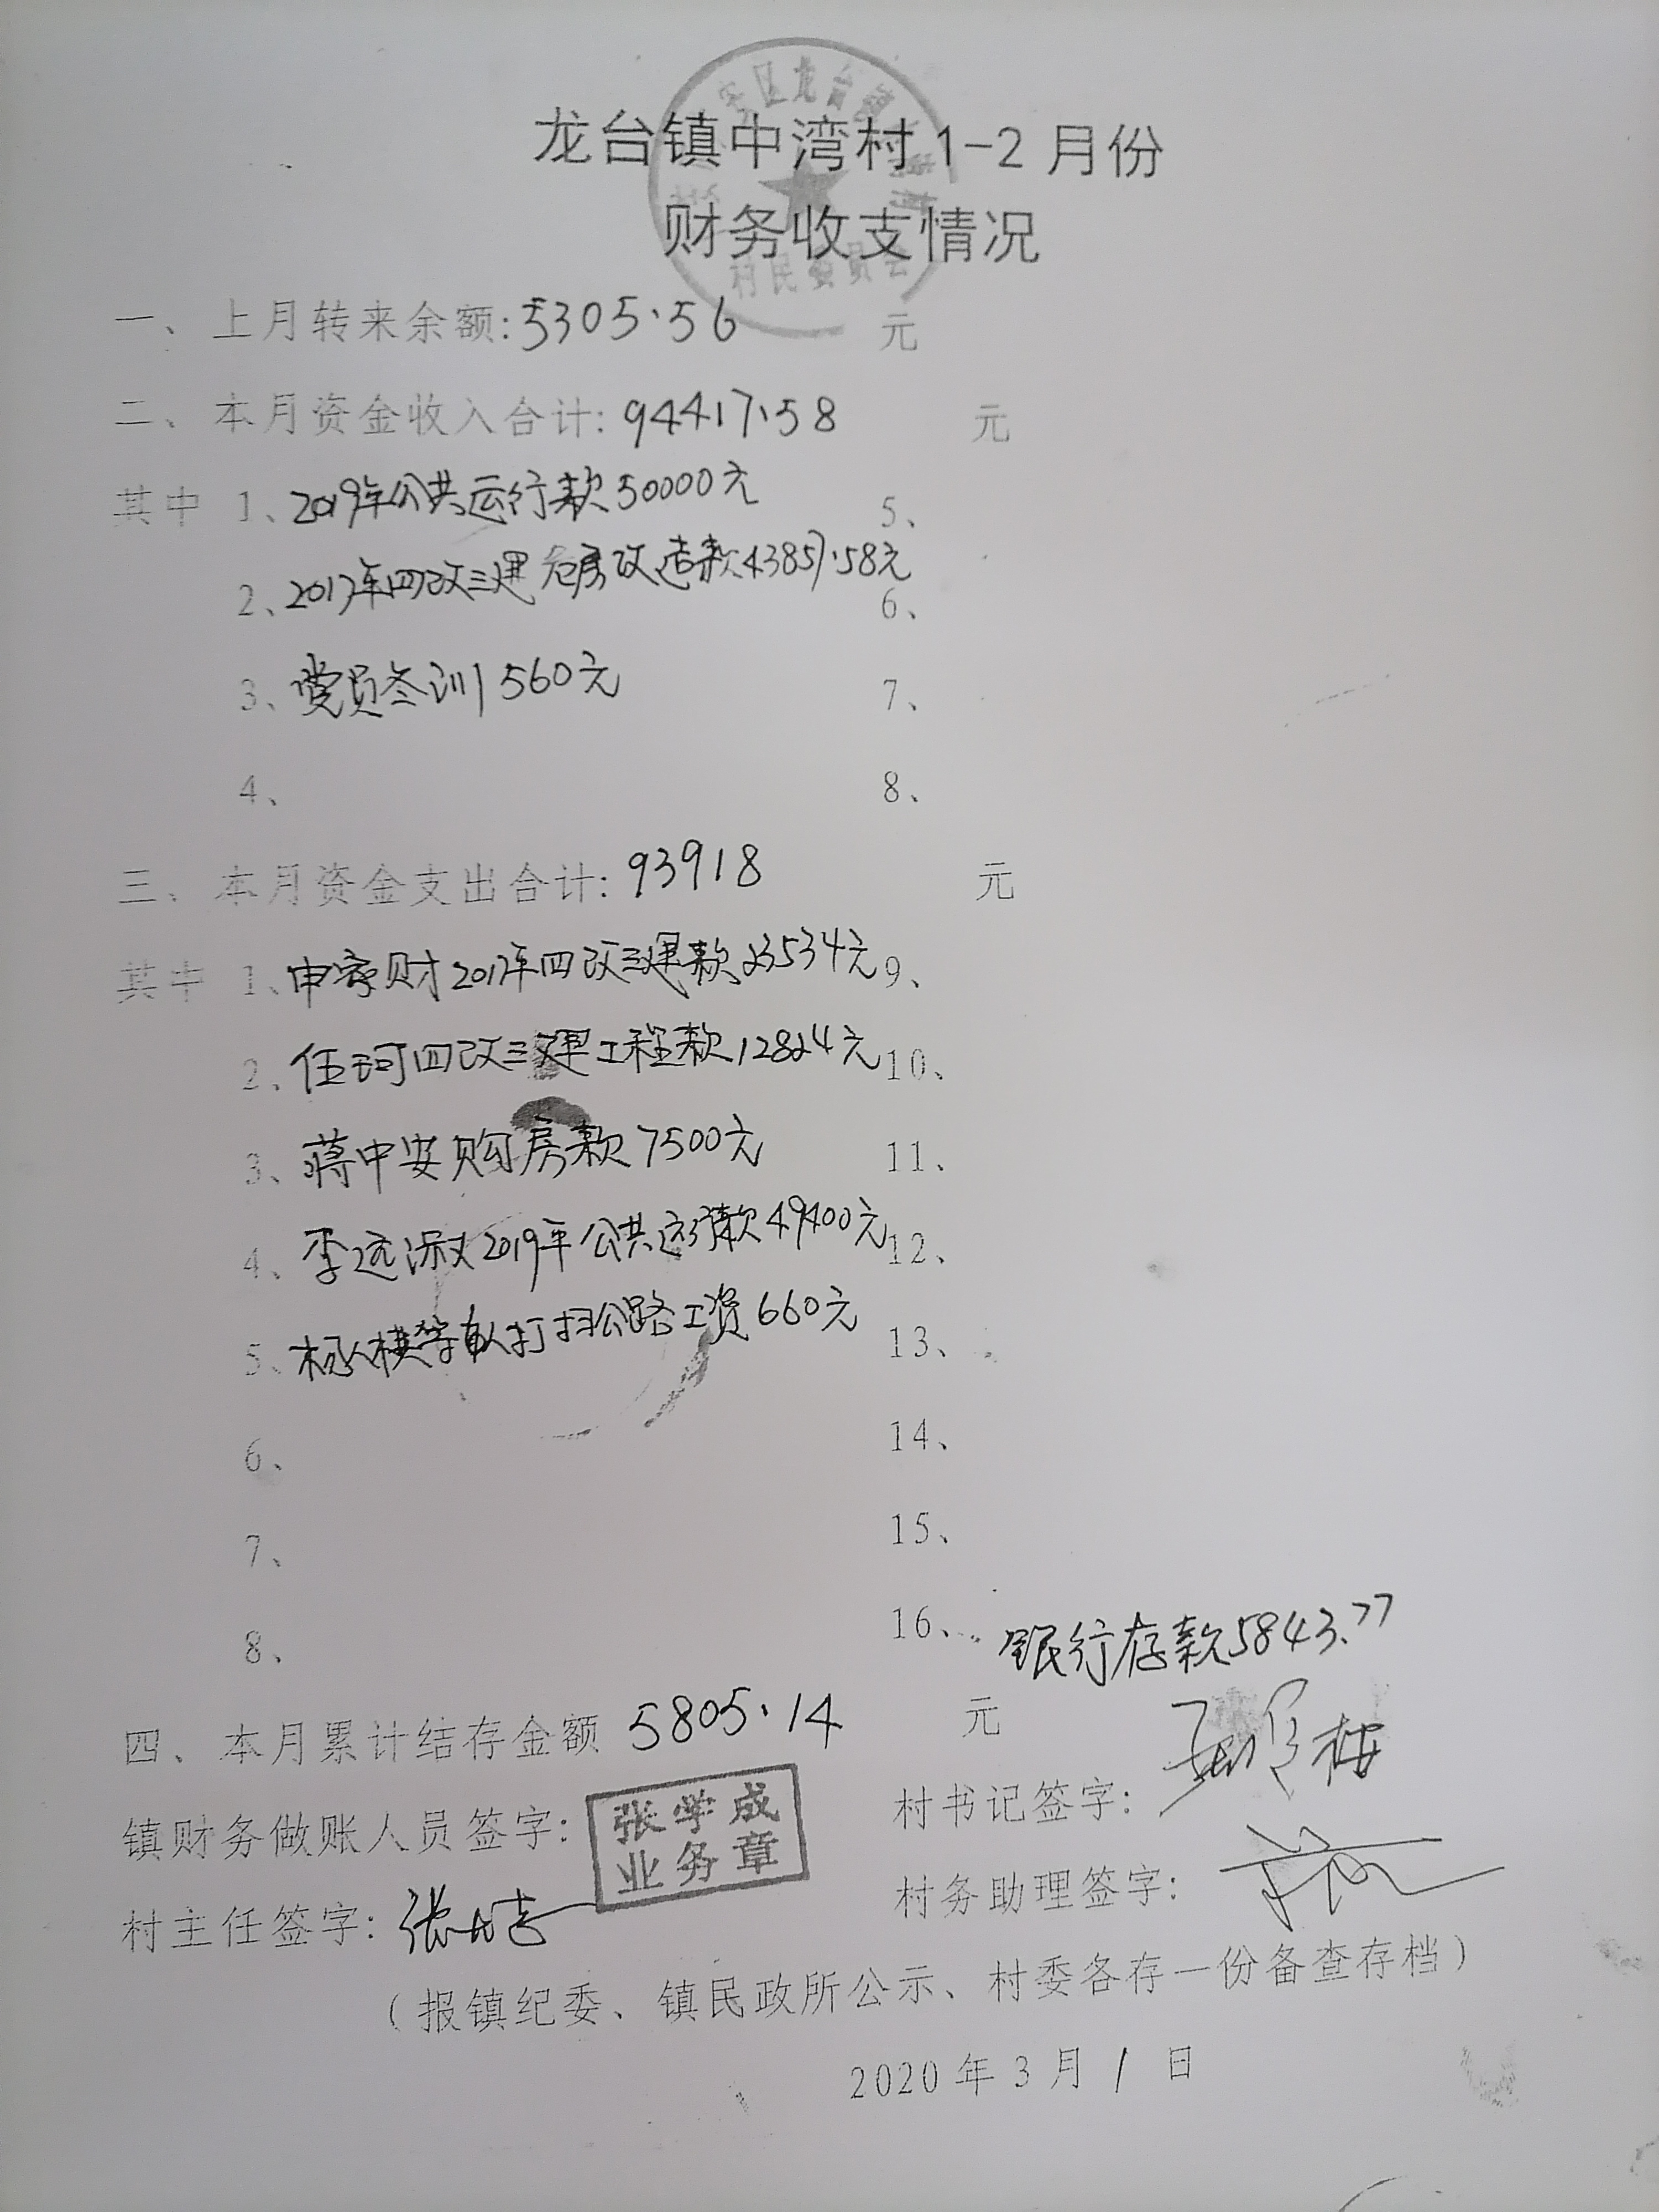 龙台镇中湾村1-2月份
财务收支情况
村民委员会
一、上月转来余额:5305.56 元
二、本月资金收入合计:94417.58 元
其中 1、2019年公共运行款50000元 5、
2、2017年四改三建危房改造款43857.58元 6、
3、党员冬训560元 7、
4、 8、
三、本月资金支出合计:93918 元
其中 1、申家财2017年四改三建款23534元 9、
2、任珂四改三建工程款12824元 10、
3、蒋中安购房款7500元 11、
4、李远淑2019年公共运行款49400元 12、
5、打扫公路工资660元 13、
6、 14、
7、 15、
8、 16、银行存款5843.77
四、本月累计结存金额 5805.14 元
镇财务做账人员签字: 张学成 村书记签字:
业务章
村主任签字: 村务助理签字:
（报镇纪委、镇民政所公示、村委各存一份备查存档）
2020年3月1日